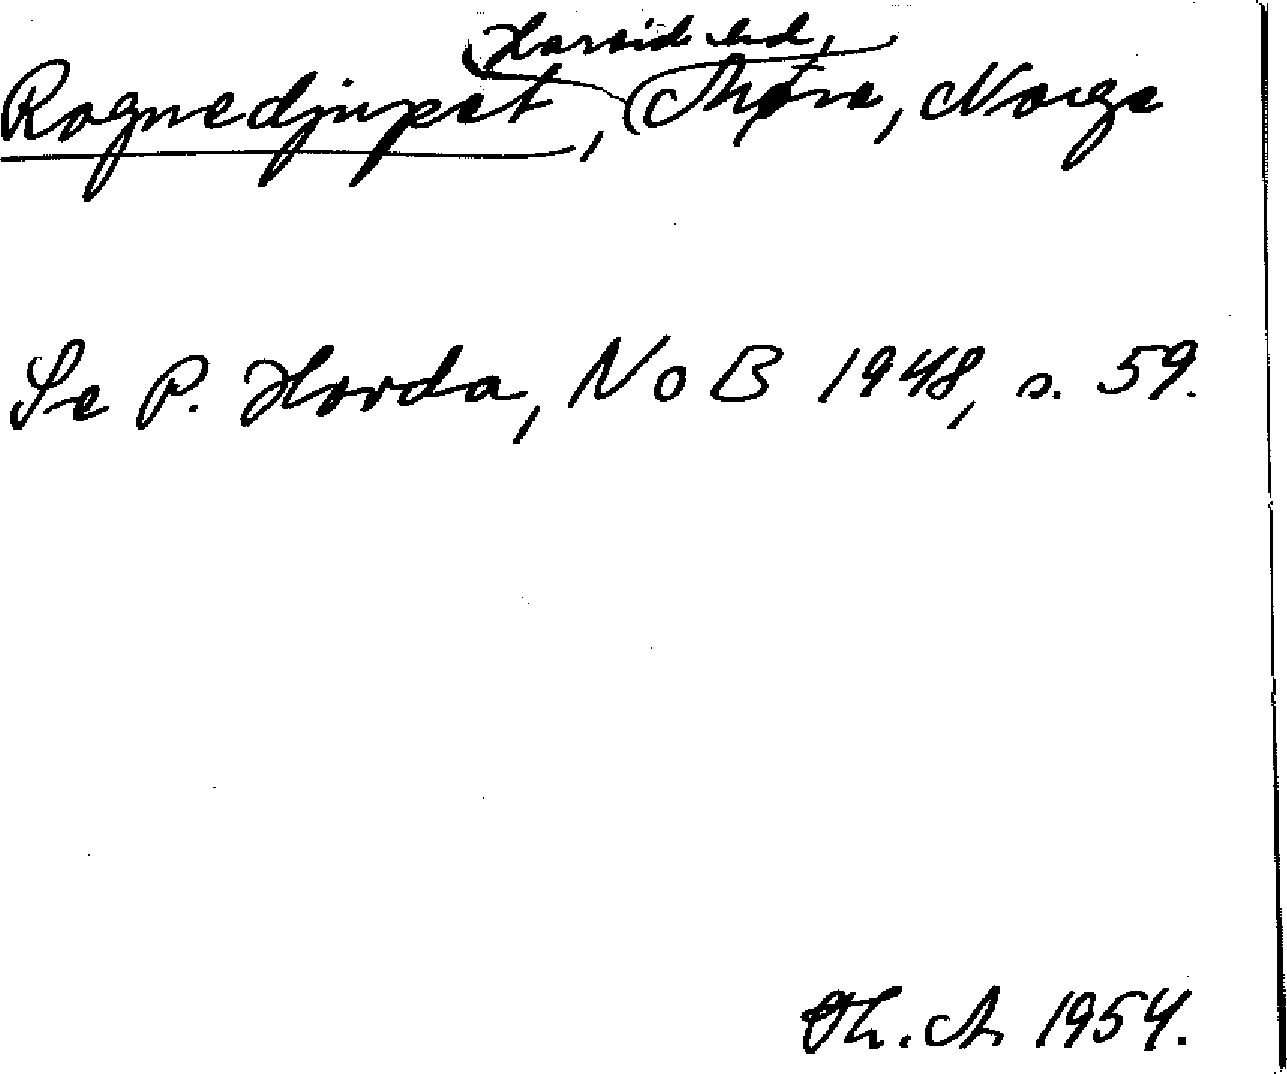 Hareid hd,
Rognedjupet, Møre, Norge
Se P. Hovda, NoB 1948, s. 59.
Th. A 1954.